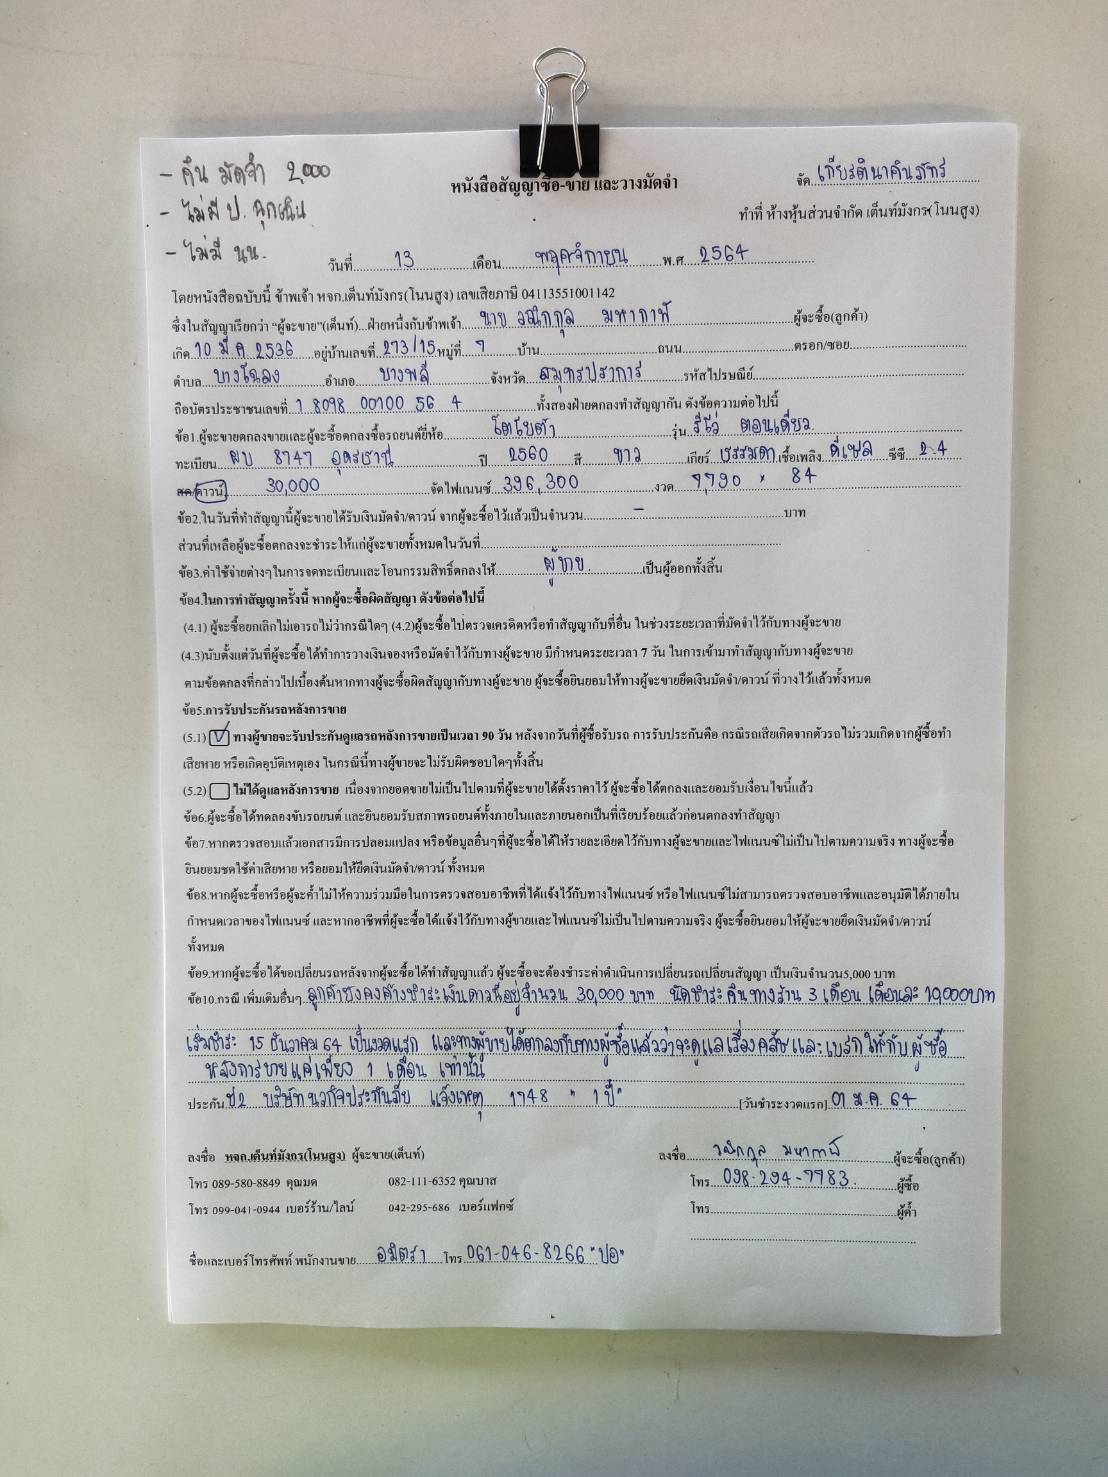 - คืน มัดจำ 2,000
- ไม่มี ป. ฉุกเฉิน
- ไม่มี นน.
หนังสือสัญญาซื้อ-ขาย และวางมัดจำ
จัด เกียรตินาคินภัทร
ทำที่ ห้างหุ้นส่วนจำกัด เต็นท์มังกร(โนนสูง)
วันที่ 13 เดือน พฤศจิกายน พ.ศ 2564
โดยหนังสือฉบับนี้ ข้าพเจ้า หจก.เต็นท์มังกร(โนนสูง) เลขเสียภาษี 04113551001142
ซึ่งในสัญญาเรียกว่า "ผู้จะขาย"(เต็นท์)...ฝ่ายหนึ่งกับข้าพเจ้า นาย วณิกกุล มหากาพ์ ผู้จะซื้อ(ลูกค้า)
เกิด 10 มี.ค. 2536 อยู่บ้านเลขที่ 273/15 หมู่ที่ 7 บ้าน ถนน ตรอก/ซอย
ตำบล บางโฉลง อำเภอ บางพลี จังหวัด สมุทรปราการ รหัสไปรษณีย์
ถือบัตรประชาชนเลขที่ 1 8098 00100 56 4 ทั้งสองฝ่ายตกลงทำสัญญากัน ดังข้อความต่อไปนี้
ข้อ1.ผู้จะขายตกลงขายและผู้จะซื้อตกลงซื้อรถยนต์ยี่ห้อ โตโยต้า รุ่น รีโว่ ตอนเดียว
ทะเบียน ผบ 8747 อุดรธานี ปี 2560 สี ขาว เกียร์ ธรรมดา เชื้อเพลิง ดีเซล ซีซี 2.4
สด/ดาวน์ 30,000 จัดไฟแนนซ์ 396,300 งวด 7,790 × 84
ข้อ2.ในวันที่ทำสัญญานี้ผู้จะขายได้รับเงินมัดจำ/ดาวน์ จากผู้จะซื้อไว้แล้วเป็นจำนวน - บาท
ส่วนที่เหลือผู้จะซื้อตกลงจะชำระให้แก่ผู้จะขายทั้งหมดในวันที่
ข้อ3.ค่าใช้จ่ายต่างๆในการจดทะเบียนและโอนกรรมสิทธิ์ตกลงให้ ผู้ขาย เป็นผู้ออกทั้งสิ้น
ข้อ4.ในการทำสัญญาครั้งนี้ หากผู้จะซื้อผิดสัญญา ดังข้อต่อไปนี้
(4.1) ผู้จะซื้อยกเลิกไม่เอารถไม่ว่ากรณีใดๆ (4.2)ผู้จะซื้อไปตรวจเครดิตหรือทำสัญญากับที่อื่น ในช่วงระยะเวลาที่มัดจำไว้กับทางผู้จะขาย
(4.3)นับตั้งแต่วันที่ผู้จะซื้อได้ทำการวางเงินจองหรือมัดจำไว้กับทางผู้จะขาย มีกำหนดระยะเวลา 7 วัน ในการเข้ามาทำสัญญากับทางผู้จะขาย
ตามข้อตกลงที่กล่าวไปเบื้องต้นหากทางผู้จะซื้อผิดสัญญากับทางผู้จะขาย ผู้จะซื้อยินยอมให้ทางผู้จะขายยึดเงินมัดจำ/ดาวน์ ที่วางไว้แล้วทั้งหมด
ข้อ5.การรับประกันรถหลังการขาย
(5.1) ✓ ทางผู้ขายจะรับประกันดูแลรถหลังการขายเป็นเวลา 90 วัน หลังจากวันที่ผู้ซื้อรับรถ การรับประกันคือ กรณีรถเสียเกิดจากตัวรถไม่รวมเกิดจากผู้ซื้อทำ
เสียหาย หรือเกิดอุบัติเหตุเอง ในกรณีนี้ทางผู้ขายจะไม่รับผิดชอบใดๆทั้งสิ้น
(5.2) ไม่ได้ดูแลหลังการขาย เนื่องจากยอดขายไม่เป็นไปตามที่ผู้จะขายได้ตั้งราคาไว้ ผู้จะซื้อได้ตกลงและยอมรับเงื่อนไขนี้แล้ว
ข้อ6.ผู้จะซื้อได้ทดลองขับรถยนต์ และยินยอมรับสภาพรถยนต์ทั้งภายในและภายนอกเป็นที่เรียบร้อยแล้วก่อนตกลงทำสัญญา
ข้อ7.หากตรวจสอบแล้วเอกสารมีการปลอมแปลง หรือข้อมูลอื่นๆที่ผู้จะซื้อได้ให้รายละเอียดไว้กับทางผู้จะขายและไฟแนนซ์ไม่เป็นไปตามความจริง ทางผู้จะซื้อ
ยินยอมชดใช้ค่าเสียหาย หรือยอมให้ยึดเงินมัดจำ/ดาวน์ ทั้งหมด
ข้อ8.หากผู้จะซื้อหรือผู้จะค้ำไม่ให้ความร่วมมือในการตรวจสอบอาชีพที่ได้แจ้งไว้กับทางไฟแนนซ์ หรือไฟแนนซ์ไม่สามารถตรวจสอบอาชีพและอนุมัติได้ภายใน
กำหนดเวลาของไฟแนนซ์ และหากอาชีพที่ผู้จะซื้อได้แจ้งไว้กับทางผู้ขายและไฟแนนซ์ไม่เป็นไปตามความจริง ผู้จะซื้อยินยอมให้ผู้จะขายยึดเงินมัดจำ/ดาวน์
ทั้งหมด
ข้อ9.หากผู้จะซื้อได้ขอเปลี่ยนรถหลังจากผู้จะซื้อได้ทำสัญญาแล้ว ผู้จะซื้อจะต้องชำระค่าดำเนินการเปลี่ยนรถเปลี่ยนสัญญา เป็นเงินจำนวน5,000 บาท
ข้อ10.กรณี เพิ่มเติมอื่นๆ ลูกค้ายังคงค้างชำระเงินดาวน์อยู่จำนวน 30,000 บาท นัดชำระคืนทางร้าน 3 เดือน เดือนละ 10,000 บาท
เริ่มชำระ 15 ธันวาคม 64 เป็นงวดแรก และทางผู้ขายได้ตกลงกับทางผู้ซื้อแล้วว่าจะดูแลเรื่องคลัชและเบรกให้กับผู้ซื้อ
หลังการขายแค่เพียง 1 เดือน เท่านั้น
ประกัน ป2 บริษัท นวกิจประกันภัย แจ้งเหตุ 1748 "1 ปี" [วันชำระงวดแรก] 01 ม.ค. 64
ลงชื่อ หจก.เต็นท์มังกร(โนนสูง) ผู้จะขาย(เต็นท์)
ลงชื่อ วณิกกุล มหากาพ์ ผู้จะซื้อ(ลูกค้า)
โทร 089-580-8849 คุณมด 082-111-6352 คุณบาส
โทร 098-294-7983 ผู้ซื้อ
โทร 099-041-0944 เบอร์ร้าน/ไลน์ 042-295-686 เบอร์แฟกซ์
โทร ผู้ค้ำ
ชื่อและเบอร์โทรศัพท์ พนักงานขาย อมิตรา โทร 061-046-8266 "ปอ"